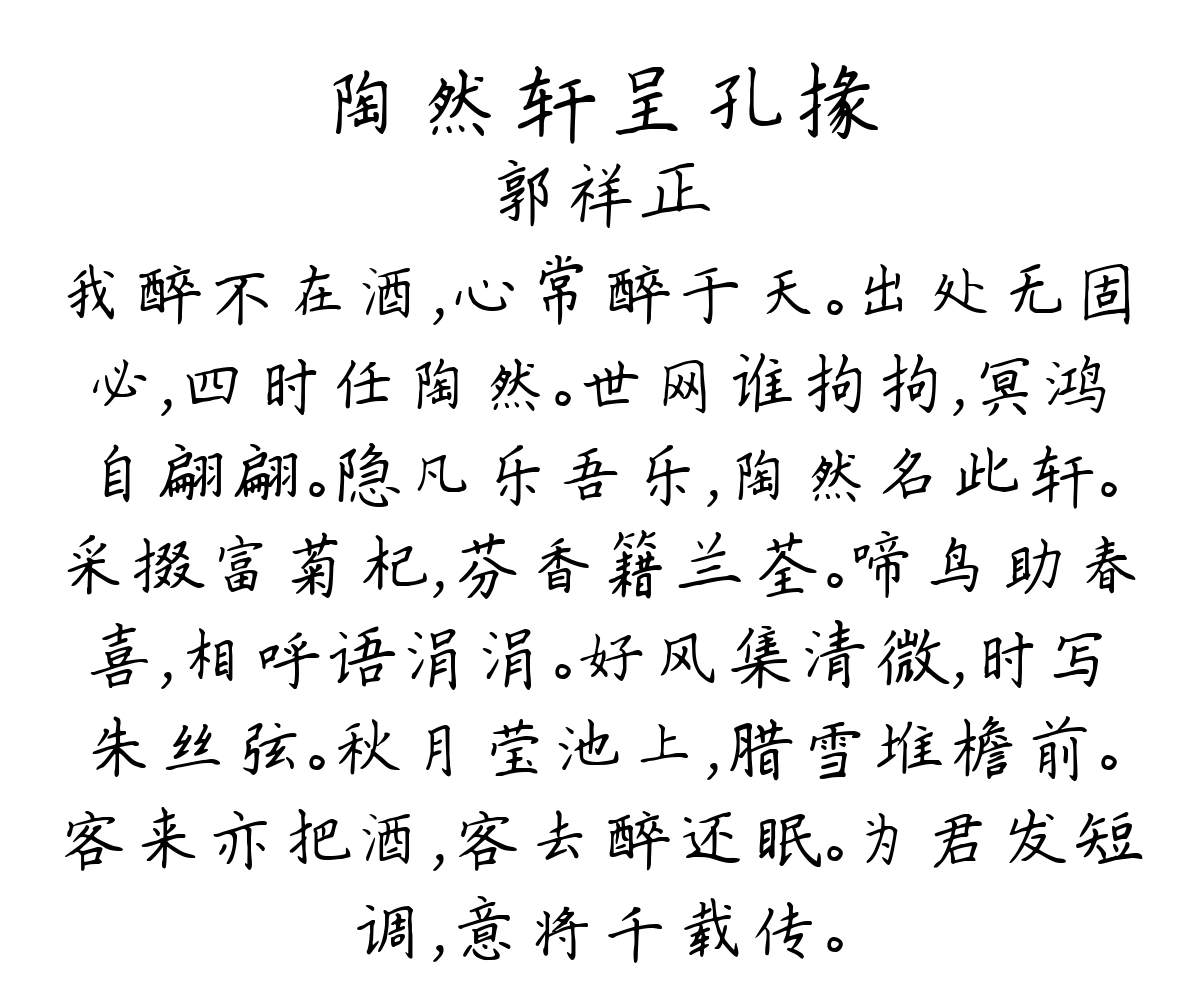 陶然轩呈孔掾
郭祥正
我醉不在酒,心常醉于天。出处无固
必,四时任陶然。世网谁拘拘,冥鸿
自翩翩。隐凡乐吾乐,陶然名此轩。
采掇富菊杞,芬香籍兰荃。啼鸟助春
喜,相呼语涓涓。好风集清微,时写
朱丝弦。秋月莹池上,腊雪堆檐前。
客来亦把酒,客去醉还眠。为君发短
调,意将千载传。